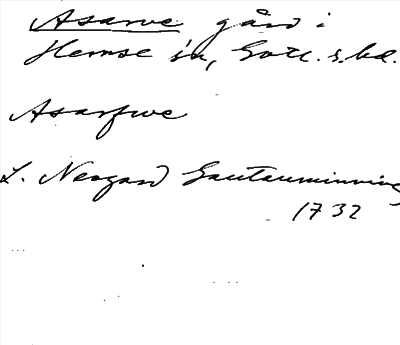 Asarve gård i
Hemse sn, Gotl. s. hd.
Asarfwe
L. Neogard Gautauminning
1732